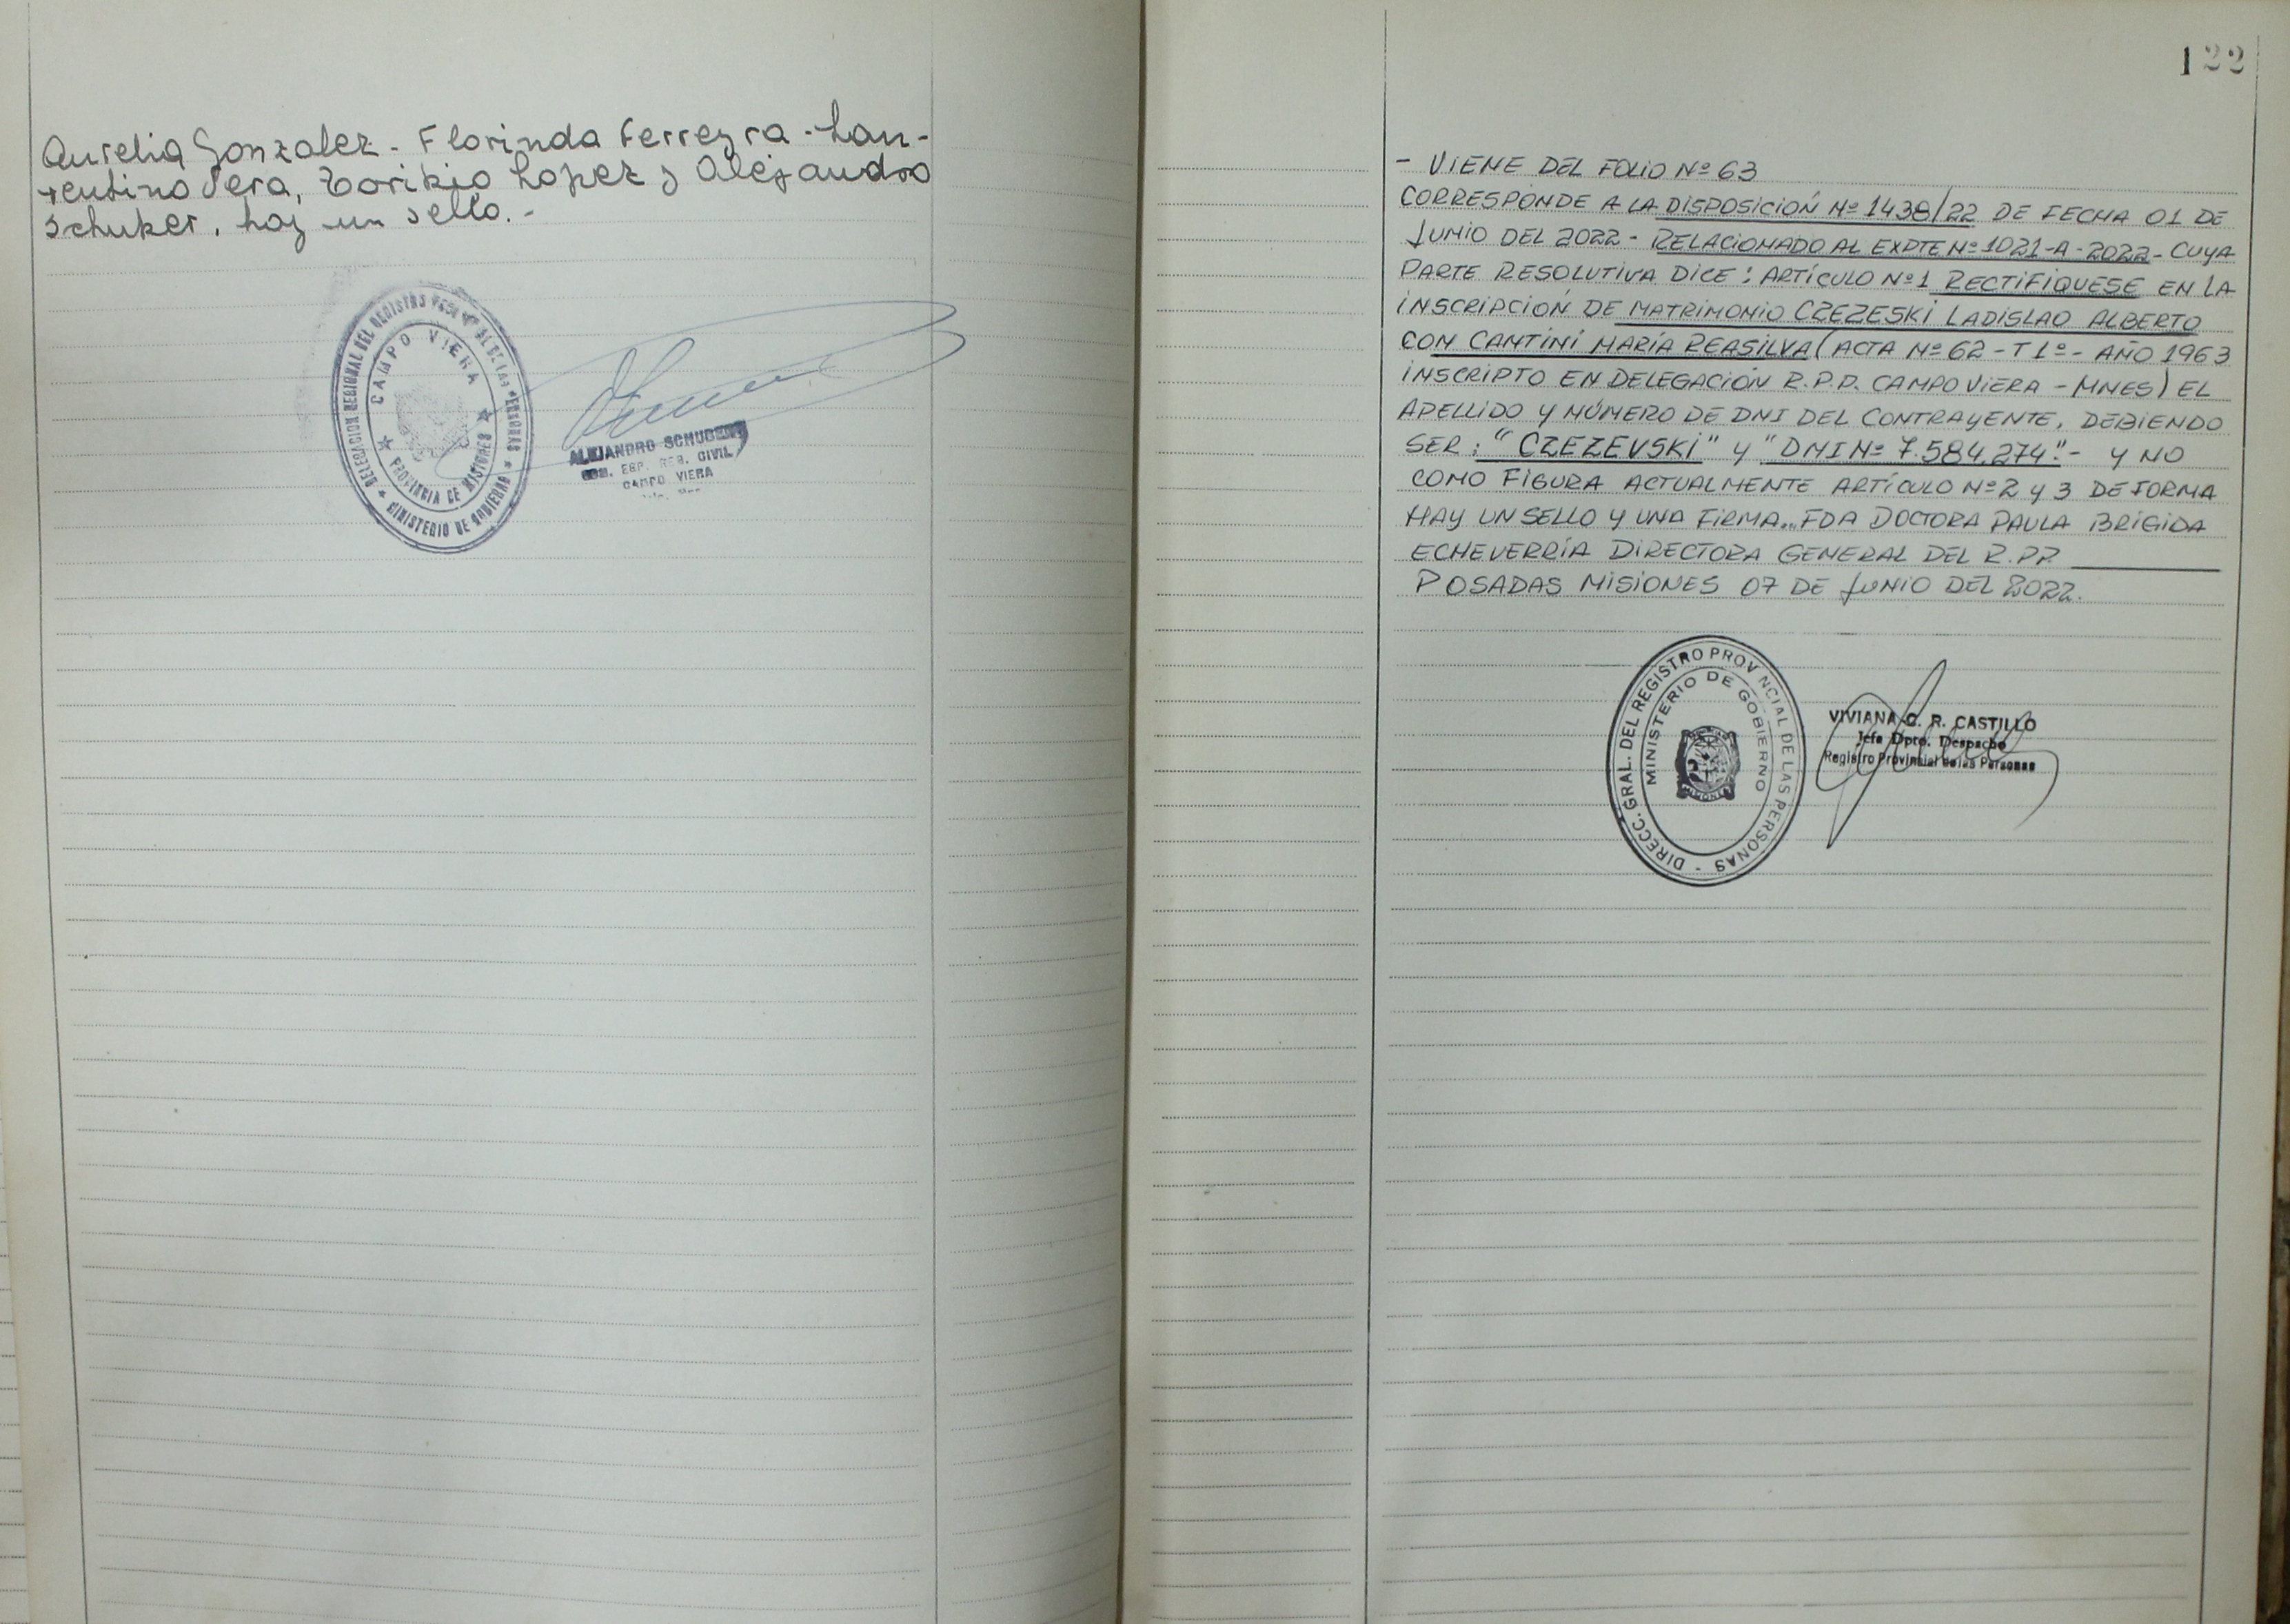 Aurelia Gonzalez - Florinda Ferreyra - Lau-
rentino Vera, Toribio Lopez y Alejandro
Schuker, hay un sello. -
DELEGACION REGIONAL DEL REGISTRO
MINISTERIO DE GOBIERNO
CAMPO VIERA
PROVINCIA DE MISIONES
ALEJANDRO SCHUBERT
REG. CIVIL
CAMPO VIERA
122
- VIENE DEL FOLIO Nº 63
CORRESPONDE A LA DISPOSICIÓN Nº 1438/22 DE FECHA 01 DE
JUNIO DEL 2022 - RELACIONADO AL EXPTE Nº 1021-A-2022 - CUYA
PARTE RESOLUTIVA DICE: ARTÍCULO Nº 1 RECTIFIQUESE EN LA
INSCRIPCIÓN DE MATRIMONIO CZEZESKI LADISLAO ALBERTO
CON CANTINI MARÍA REASILVA (ACTA Nº 62 - T 1º - AÑO 1963
INSCRIPTO EN DELEGACIÓN R.P.P. CAMPO VIERA - MNES) EL
APELLIDO Y NÚMERO DE DNI DEL CONTRAYENTE, DEBIENDO
SER: "CZEZEVSKI" Y "DNI Nº 7.584.274". - Y NO
COMO FIGURA ACTUALMENTE ARTÍCULO Nº 2 Y 3 DE FORMA
HAY UN SELLO Y UNA FIRMA... FDA DOCTORA PAULA BRIGIDA
ECHEVERRÍA DIRECTORA GENERAL DEL R.P.P.
POSADAS MISIONES 07 DE JUNIO DEL 2022.
DIRECC. GRAL. DEL REGISTRO PROVINCIAL DE LAS PERSONAS -
MINISTERIO DE GOBIERNO
MISIONES
VIVIANA C. R. CASTILLO
Jefa Dpto. Despacho
Registro Provincial de las Personas